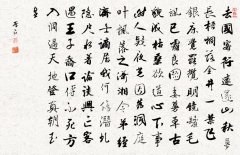 去國客行遠還山秋夢
長梧桐落金井一葉飛
銀床覺罷攬明鏡鬢毛
颯已霜良圖委蔓草古
貌成枯桑欲道心下事
時人疑夜光因為洞庭
葉飄落之瀟湘令弟經
濟士謫居我何傷潛虯
隱尺水著論談興亡客
遇王子喬口傳不死方
入洞過天地登真朝玉
皇